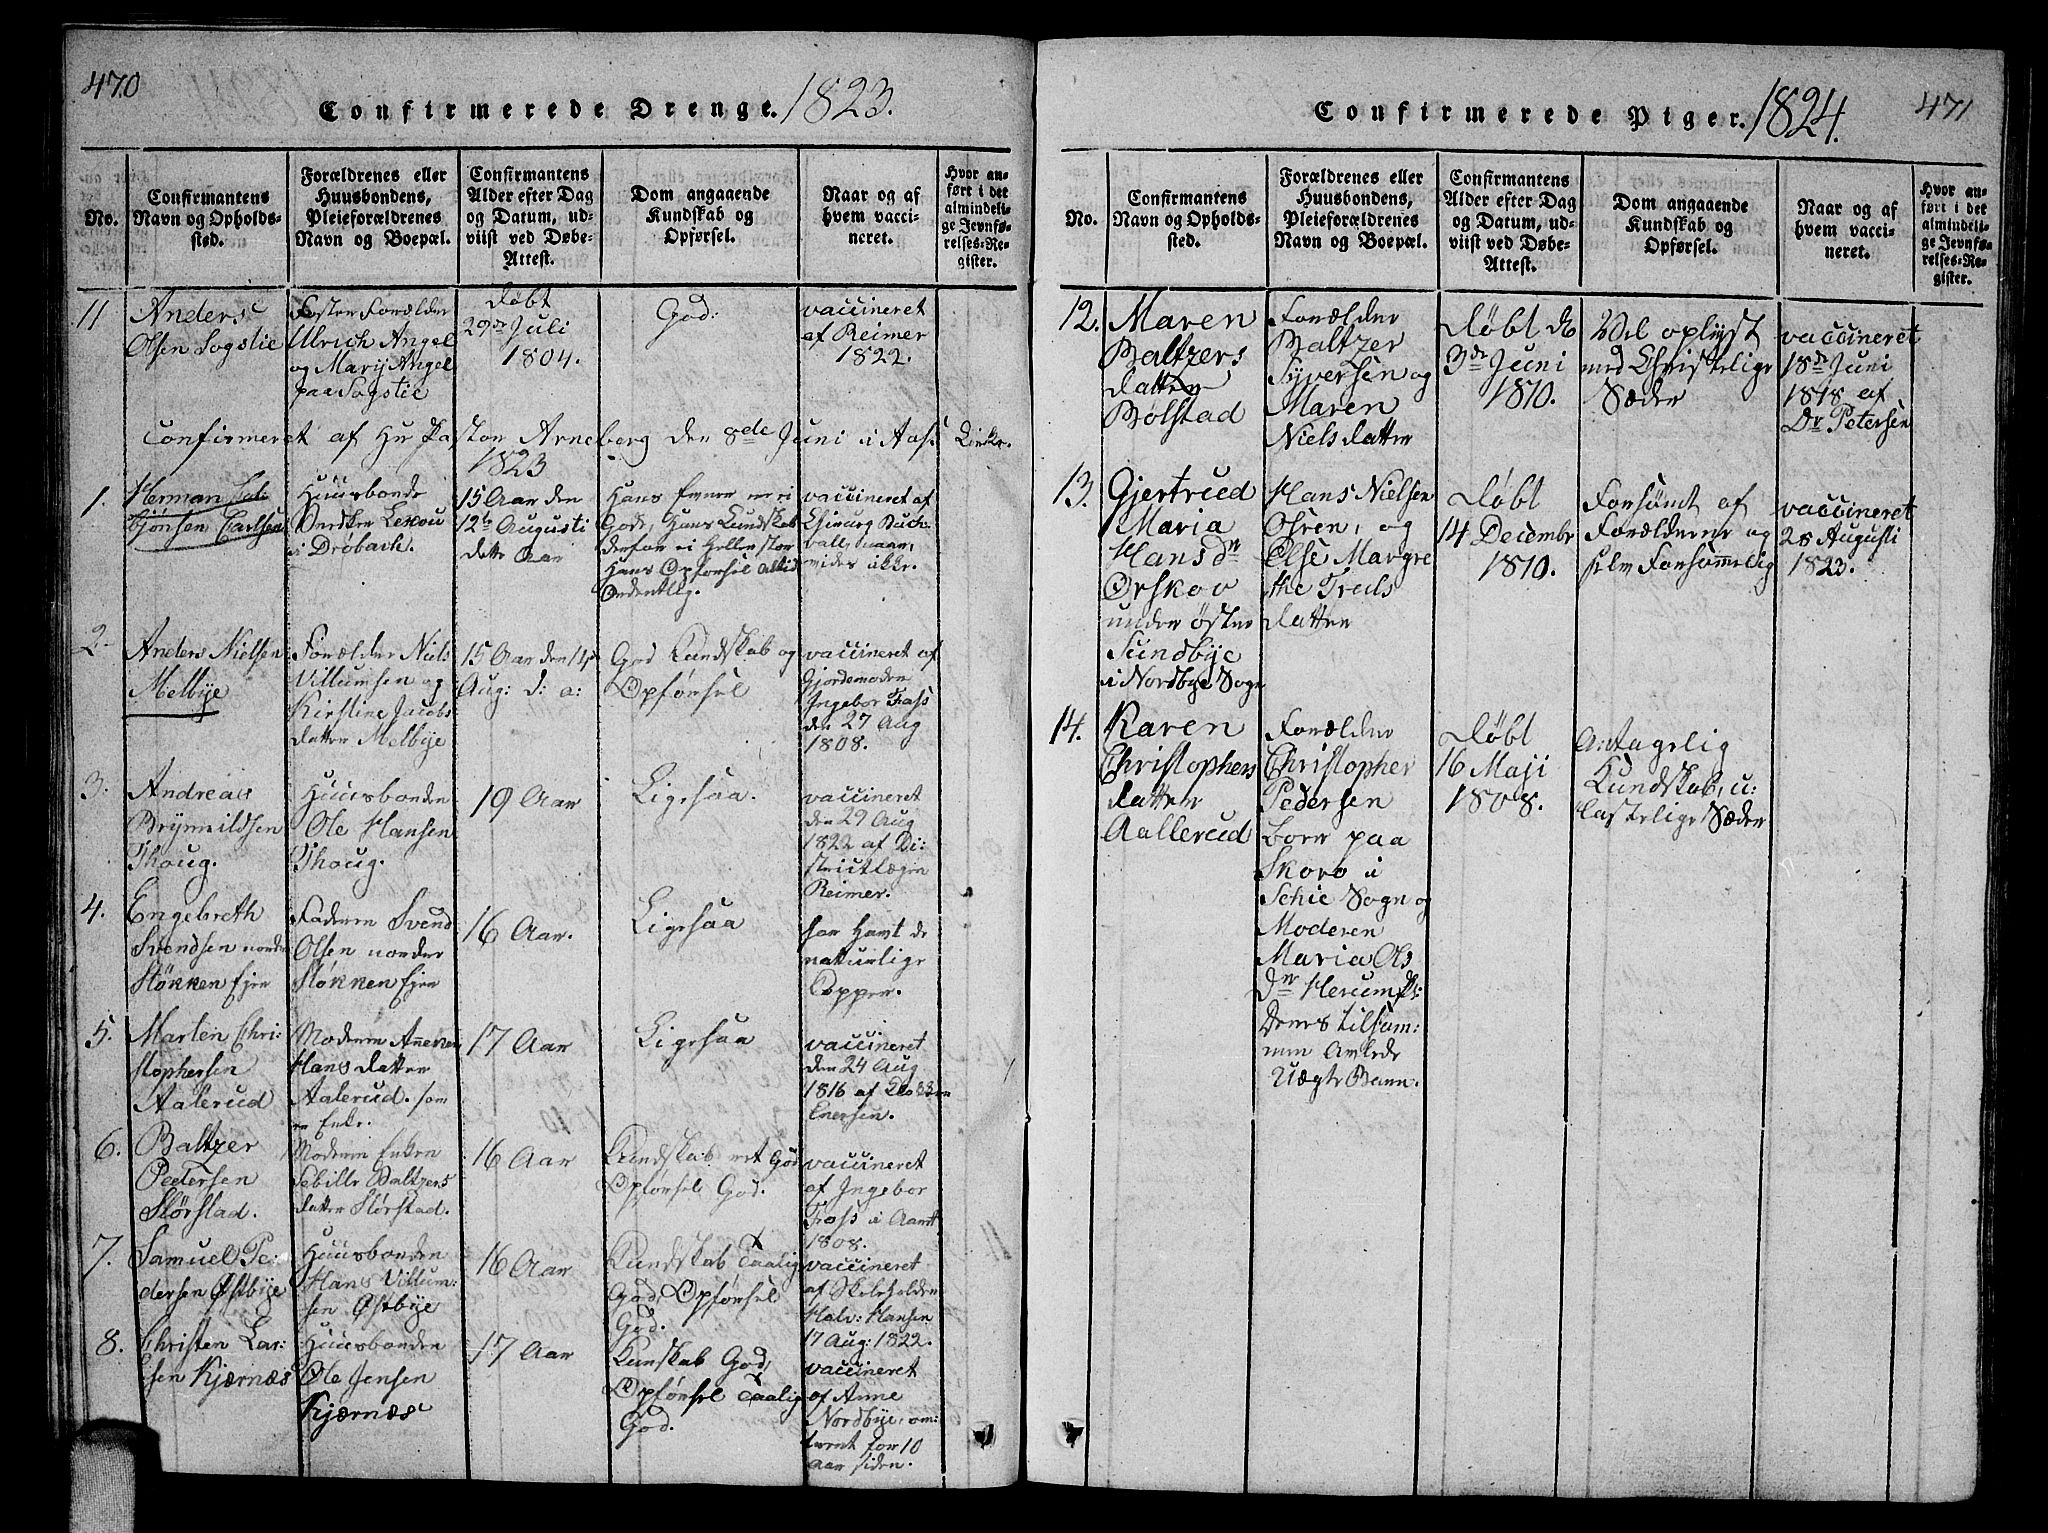 470
Confirmerede Drenge. 1823.
No.
Confirmantens
Navn og Opholds-
sted.
Forældrenes eller
Huusbondens,
Pleieforældrenes
Navn og Boepæl.
Confirmantens
Alder efter Dag
og Datum, ud-
viist ved Døbe-
Attest.
Dom angaaende
Kundskab og
Opførsel.
Naar og af
hvem vacci-
neret.
Hvor an-
ført i det
almindeli-
ge Jevnfø-
relses-Re-
gister.
11
Anders
Olsen Sogstie
Foster Forælder
Ulrich Angel
og Mary Angel
paa Sogstie
døbt
29de Juli
1804.
God:
vaccineret
af Reimer
1822.
Confirmeret af Hr Pastor Arneberg den 8de Juni i Aas Kirke.
1823
1.
Herman
bjönsen Carlsen
Huusbonde
i Dröbach.
15 Aar den
12te Augusti
dette Aar
Hans Evner er ei
Gode, Hans Kundskab
derfor ei heller stor
Hans Opførsel altid
Ordentlig.
vaccineret af
vides ikke.
2.
Anders Nielsen
Melbye
Forælder Niels
Villumsen og
Kirstine Jacobs
datter Melbye
15 Aar den 14
Aug: d: a:
God Kundskab og
Opførsel
vaccineret af
Gjordemoder
Ingebor Foss
den 27 Aug
1808.
3.
Andreas
Brynnildsen
Thoug.
Huusbonden
Ole Hansen
Thoug.
19 Aar
Ligesaa.
vaccineret
den 29 Aug
1822 af Di:
strictlægen
Reimer.
4.
Engebreth
Svendsen nordre
Stökken Ejer
Faderen Svend
Olsen nordre
Stökken Ejer
16 Aar.
Ligesaa
har havt de
naturlige
Copper.
5.
Marten Chri:
stophersen
Aalerud
Moderen Anne
Hans datter
Aalerud. som
er Enke.
17 Aar
Ligesaa
vaccineret
den 24 Aug
1816 af Klokker
Enersen.
6.
Baltzer
Pedersen
Störstad.
Moderen Enken
Sebille Baltzers
datter Störstad.
16 Aar
Kundskab ret God
Opførsel God.
vaccineret
af Ingebor
Foss i Aaret
1808.
7.
Samuel Pe:
dersen Østbye
Huusbonden
Hans Villum:
sen Østbye
16 Aar
Kundskab Taalig
God, Opførsel
God.
vaccineret
af Skoleholder
Halv: Hansen
17 Aug: 1822.
8.
Christen Lar:
sen Kjærnæs
Huusbonden
Ole Jensen
Kjærnæs
17 Aar
Kunskab God,
Opførsel Taalig
God.
vaccineret
af Anne
Nordbye, om:
trent for 10
Aar siden.
Confirmerede Piger. 1824.
471
No.
Confirmantens
Navn og Opholds-
sted.
Forældrenes eller
Huusbondens,
Pleieforældrenes
Navn og Boepæl.
Confirmantens
Alder efter Dag
og Datum, ud-
viist ved Døbe-
Attest.
Dom angaaende
Kundskab og
Opførsel.
Naar og af
hvem vacci-
neret.
Hvor an-
ført i det
almindeli-
ge Jevnfø-
relses-Re-
gister.
12.
Maren
Baltzers
datter
Bolstad
Forælder
Baltzer
Syversen og
Maren
Niels datter
Døbt d
3de Juni
1810.
Vel oplyst
med Christelige
Sæder
vaccineret
18de Juni
1818 af
Dr Petersen
13.
Gjertrud
Maria
Hans dr
Orskov
under öster
Sundbye
i Nordbye Sogn
Hans Nielsen
Osren, og
Else Margre
the Trels
datter
Døbt
14 Decembr
1810.
Forsömt af
Forælderne og
selv Forsømmelig
vaccineret
28 Augusti
1823.
14.
Karen
Christophers
datter
Aallerud
Forælder
Christopher
Pedersen
boer paa
Skoro i
Schie Sogn og
Moderen
Maria Ols
Dr Herum
Deres tilsam:
men Avlede
Uægte Barn.
Døbt
16 Maji
1808.
Antagelig
Kundskab, u:
lastelige Sæder